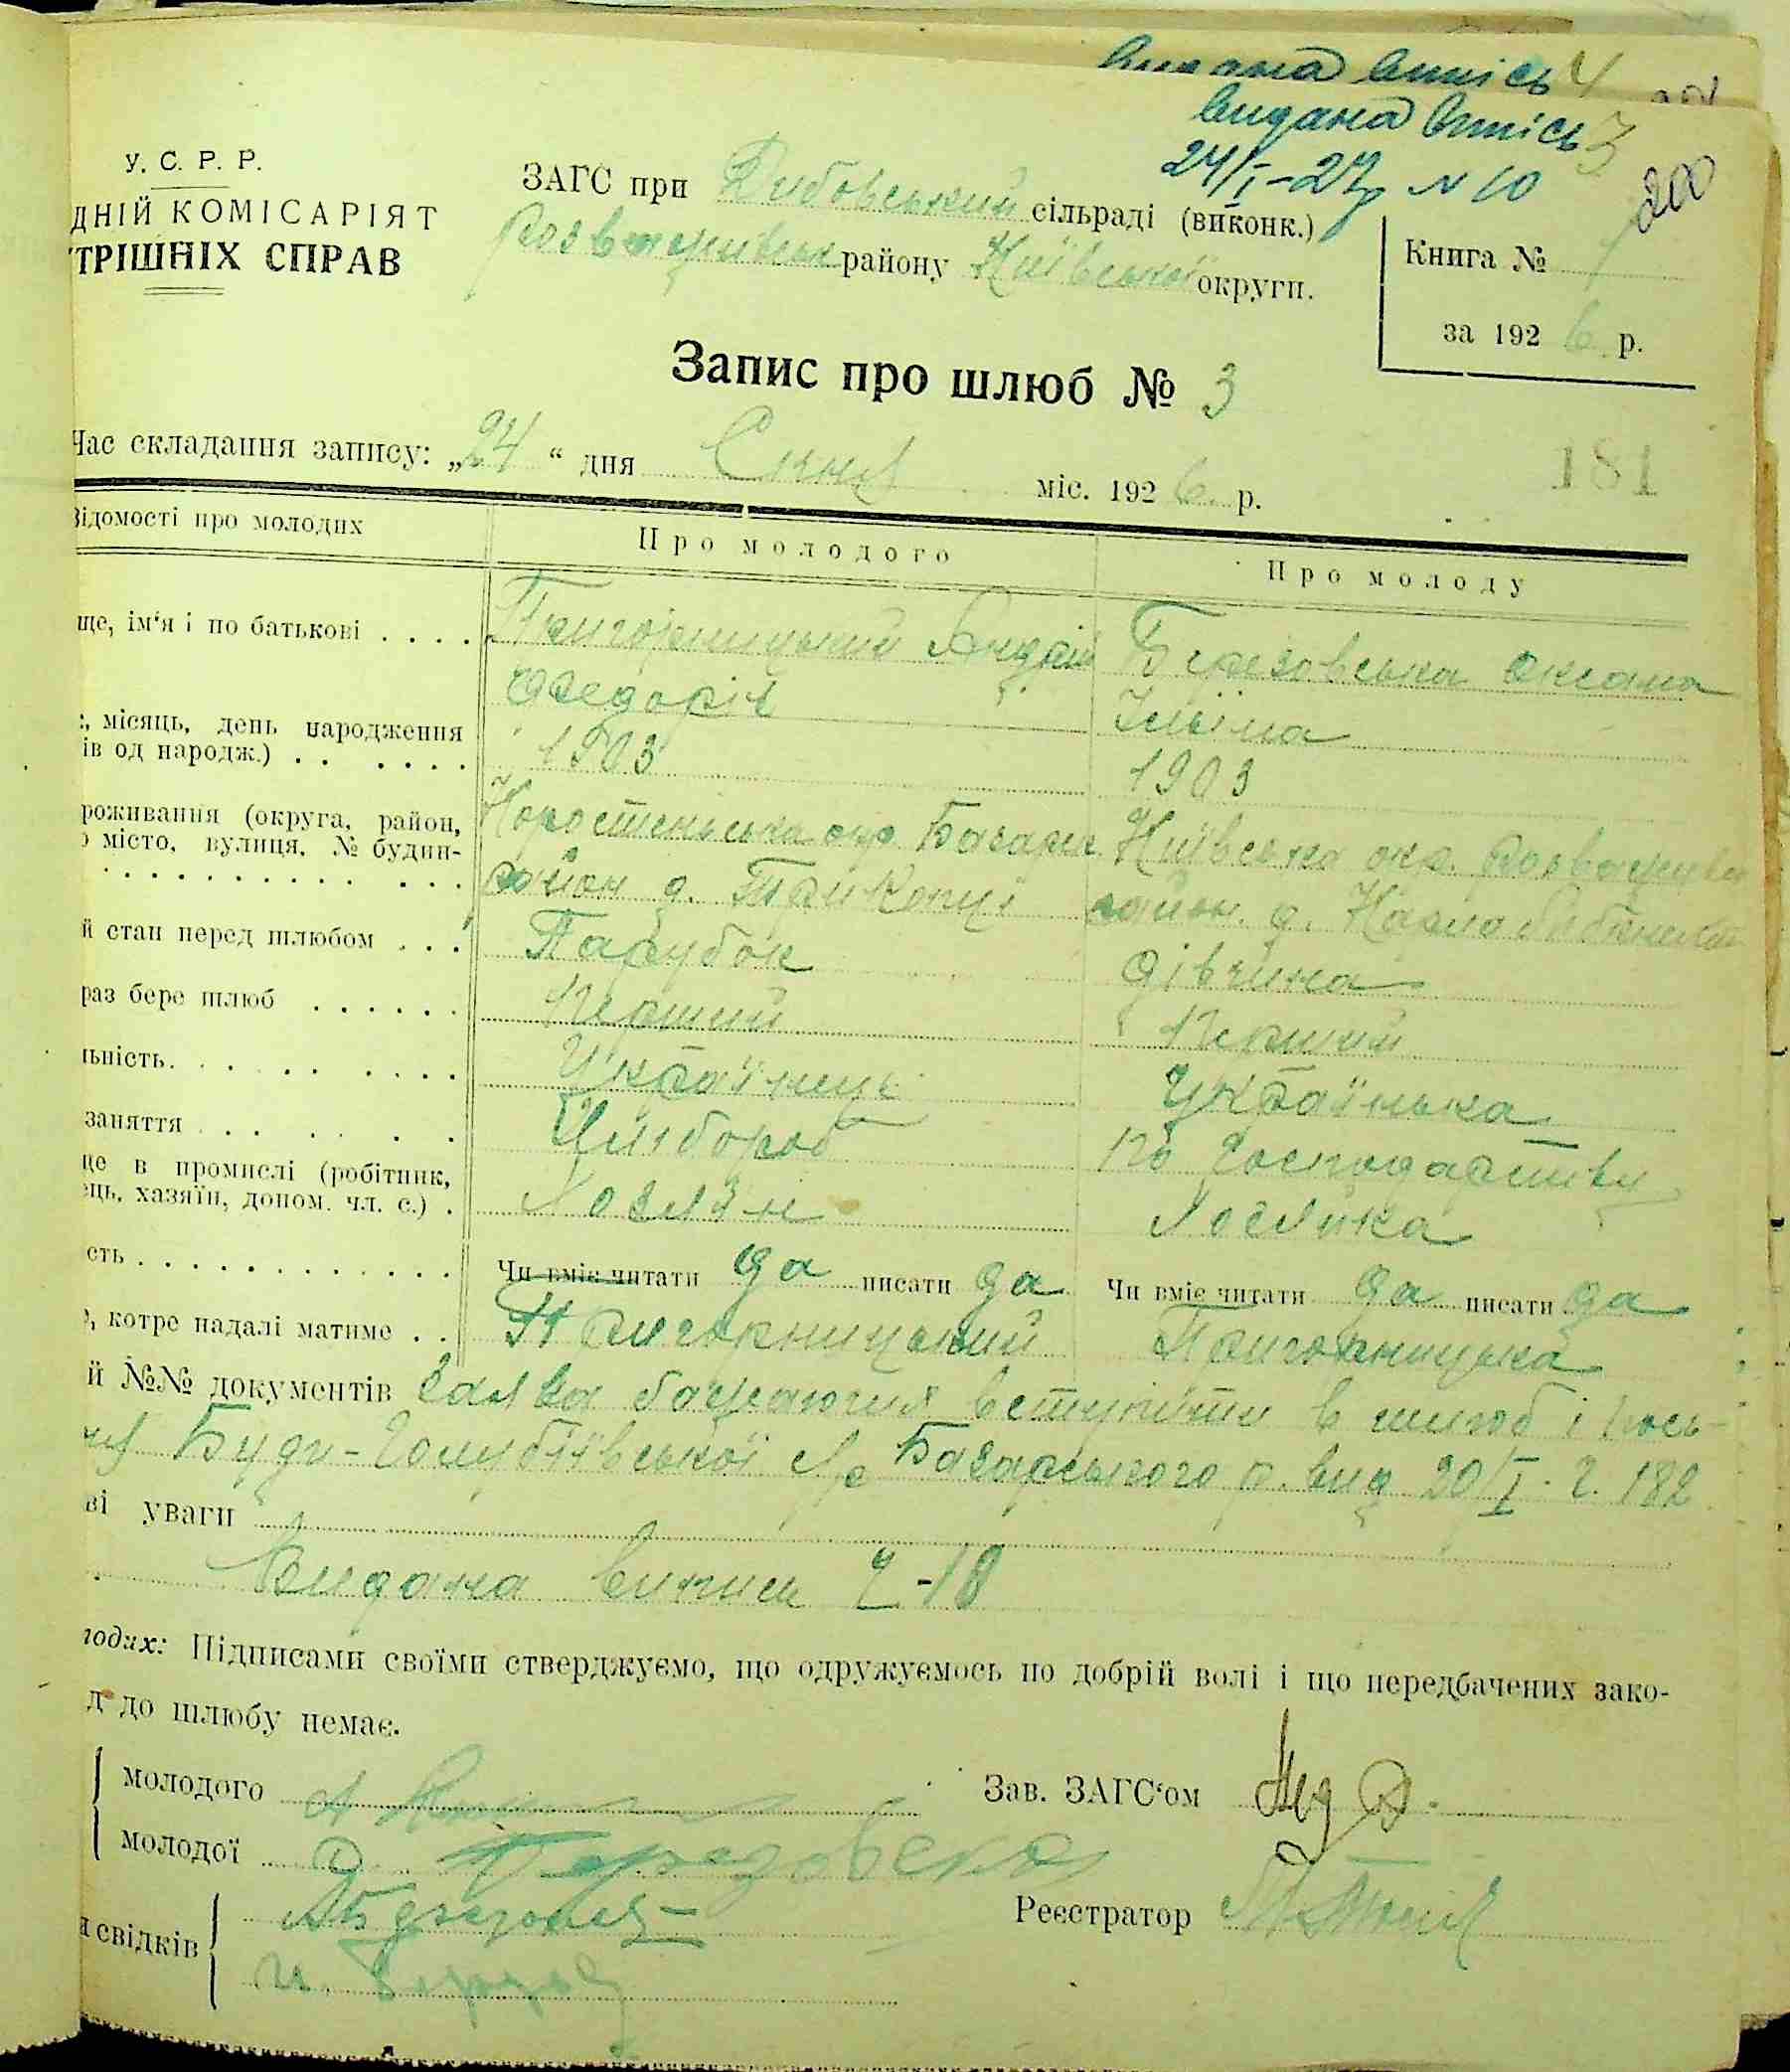 видана впись 4
видана впись 3
24/I-27р N 10
200
У. С. Р. Р.
ДНІЙ КОМІСАРІЯТ
ТРІШНІХ СПРАВ
ЗАГС при сільраді (виконк.)
району Київської округи.
Книга № 1
за 1926 р.
Запис про шлюб № 3
181
Час складання запису: „24“ дня Січня міс. 1926 р.
Відомості про молодих
Про молодого
Про молоду
ще, ім'я і по батькові . . . .
Пригорницький Андрій
Федорів
Березовська Оксана
, місяць, день народження
ів од народж.) . . . . . .
1903
1903
роживання (округа, район,
місто, вулиця, № будин-
Коростенська окр. Базарск.
район д.
Київська окр. Розважівск
район. д.
й стан перед шлюбом . . .
Парубок
дівчина
раз бере шлюб . . . . . .
Перший
Перший
льність. . . . . . . . .
Українець
Українька
заняття . . . . . .
Хлібороб
по господарству
ще в промислі (робітник,
ець, хазяїн, допом. чл. с.) .
Хозяїн
Хозяйка
сть . . . . . . . . . . . .
Чи вміє читати да писати да
Чи вміє читати да писати да
, котре надалі матиме . .
Пригорницький
Пригорницька
й №№ документів Заява бажаючих вступити в шлюб і посв-
Буди-Голубіївської с/р Базарського р. вид 20/I. ч. 182
ві уваги
Видана випись ч-18
годих: Підписами своїми стверджуємо, що одружуємось по добрій волі і що передбачених зако-
д до шлюбу немає.
молодого
Зав. ЗАГС'ом
молодої О Березовска
Реєстратор
свідків